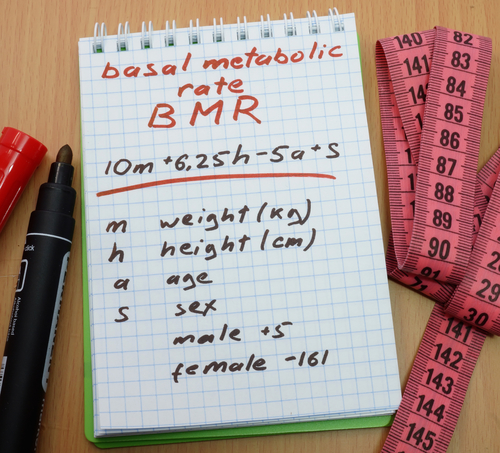 basal metabolic
rate
BMR
10m+6.25h-5a+s
m weight (kg)
h height (cm)
a age
s sex
male +5
female -161
140
141
82
83
84
85
86
87
88
89
90
91
30
141
142
143
144
145